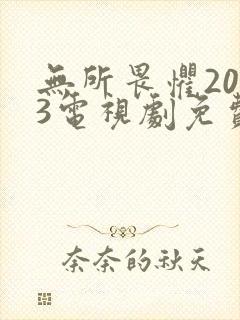 無所畏懼20
3電視劇免費
奈奈的秋天